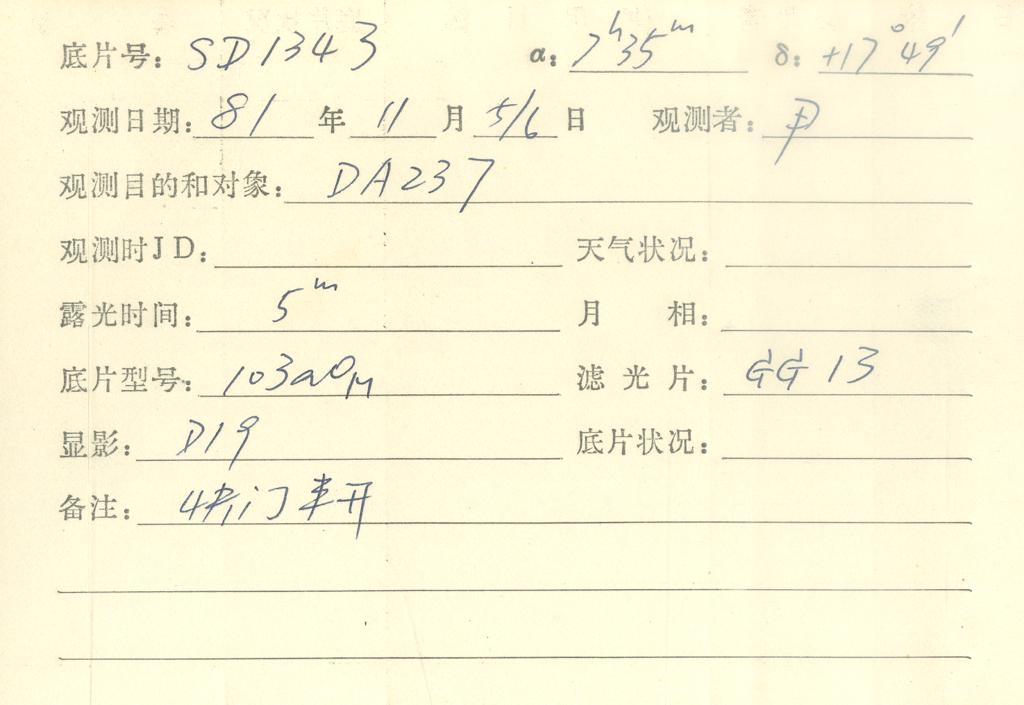 底片号: SD1343 α: 7ʰ35ᵐ δ: +17°49′
观测日期: 81 年 11 月 5/6 日 观测者:
观测目的和对象: DA237
观测时JD: 天气状况:
露光时间: 5ᵐ 月 相:
底片型号: 103aO 滤光片: GG 13
显影: D19 底片状况:
备注: 快门未开